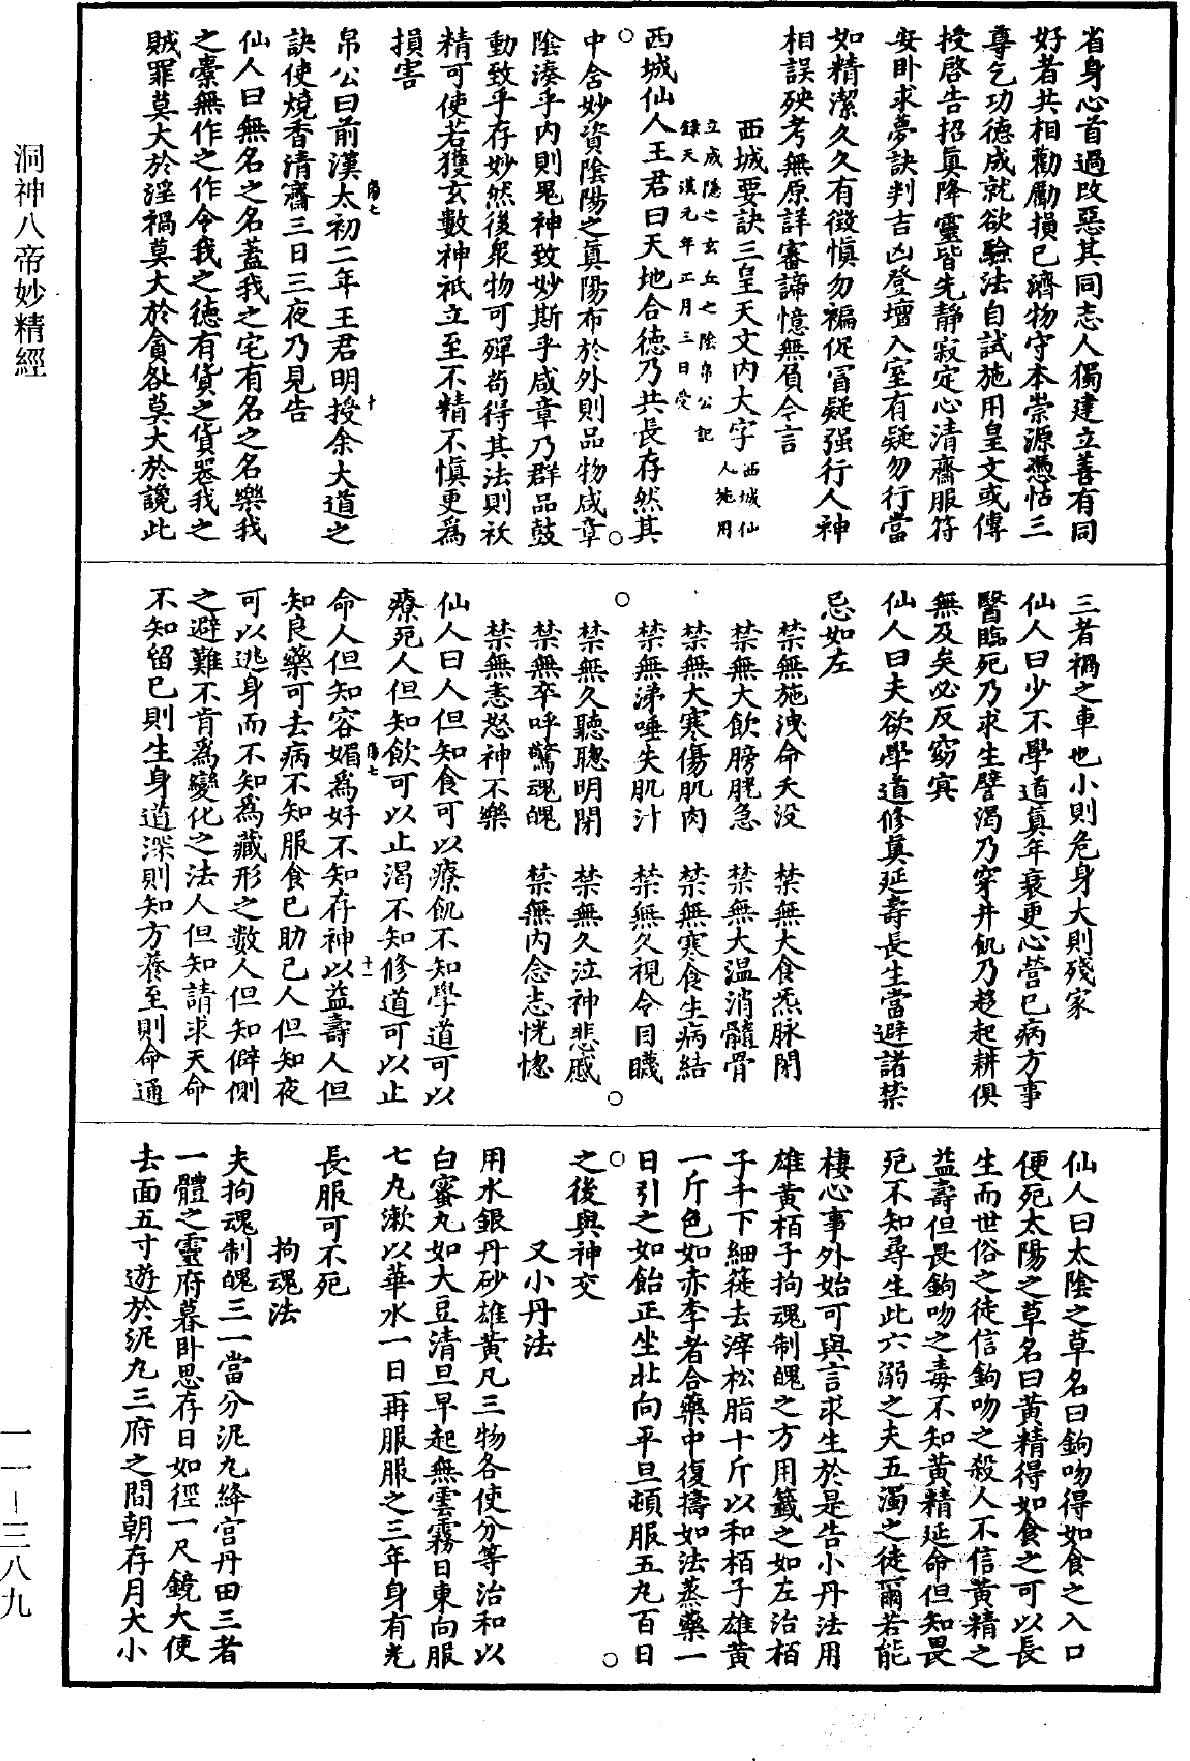 洞神八帝妙精經
省身心首過改惡其同志人獨建立善有同
好者共相勸勵損已濟物守本崇源憑怙三
尊乞功德成就欲驗法自試施用皇文或傳
授啓告招真降靈皆先靜寂定心清齋服符
安卧求夢訣判吉凶登壇入室有疑勿行當
如精潔久久有徵慎勿褊促冒疑强行人神
相誤殃考無原詳審諦憶無負令言
西城要訣三皇天文内大字西城仙人施用
立成隱之玄丘之陰帛公記
錄天漢元年正月三日受
西城仙人王君曰天地合德乃共長存然其
中含妙資陰陽之真陽布於外則品物咸章
陰湊乎内則鬼神致妙斯乎咸章乃群品鼓
動致乎存妙然後衆物可殫苟得其法則祅
精可使若獲玄數神祇立至不精不慎更爲
損害
帛公曰前漢太初二年王君明授余大道之
訣使燒香清齋三日三夜乃見告
仙人曰無名之名蓋我之宅有名之名樂我
之橐無作之作令我之德有貨之貨器我之
賊罪莫大於淫禍莫大於貪咎莫大於讒此
三者禍之車也小則危身大則殘家
仙人曰少不學道真年衰更心營已病方事
醫臨死乃求生譬渴乃穿井飢乃趍起耕俱
無及矣必反窈冥
仙人曰夫欲學道修真延壽長生當避諸禁
忌如左
禁無施洩命夭没　禁無大食炁脉閉
禁無大飲膀胱急　禁無大温消髓骨
禁無大寒傷肌肉　禁無寒食生病結
禁無涕唾失肌汁　禁無久視令目䁾
禁無久聽聰明閉　禁無久泣神悲慼
禁無卒呼驚魂魄　禁無内念志恍惚
禁無恚怒神不樂
仙人曰人但知食可以療飢不知學道可以
療死人但知飲可以止渴不知修道可以止
命人但知容媚爲好不知存神以益壽人但
知良藥可去病不知服食已助已人但知夜
可以逃身而不知爲藏形之數人但知僻側
之避難不肯爲變化之法人但知請求天命
不知留已則生身道深則知方養至則命通
仙人曰太陰之草名曰鉤吻得如食之入口
便死太陽之草名曰黄精得如食之可以長
生而世俗之徒信鉤吻之殺人不信黄精之
益壽但畏鉤吻之毒不知黄精延命但知畏
死不知尋生此六溺之夫五濁之徒爾若能
棲心事外始可與言求生於是告小丹法用
雄黄栢子拘魂制魄之方用籤之如左治栢
子千下細簁去滓松脂十斤以和栢子雄黄
一斤色如赤李者合藥中復擣如法蒸藥一
日引之如飴正坐北向平旦頓服五丸百日
之後與神交
又小丹法
用水銀丹砂雄黄凡三物各使分等治和以
白蜜丸如大豆清旦早起無雲霧日東向服
七丸漱以華水一日再服服之三年身有光
長服可不死
拘魂法
夫拘魂制魄三一當分泥丸絳宫丹田三者
一體之靈府暮卧思存日如徑一尺鏡大使
去面五寸遊於泥丸三府之間朝存月大小
一一—三八九